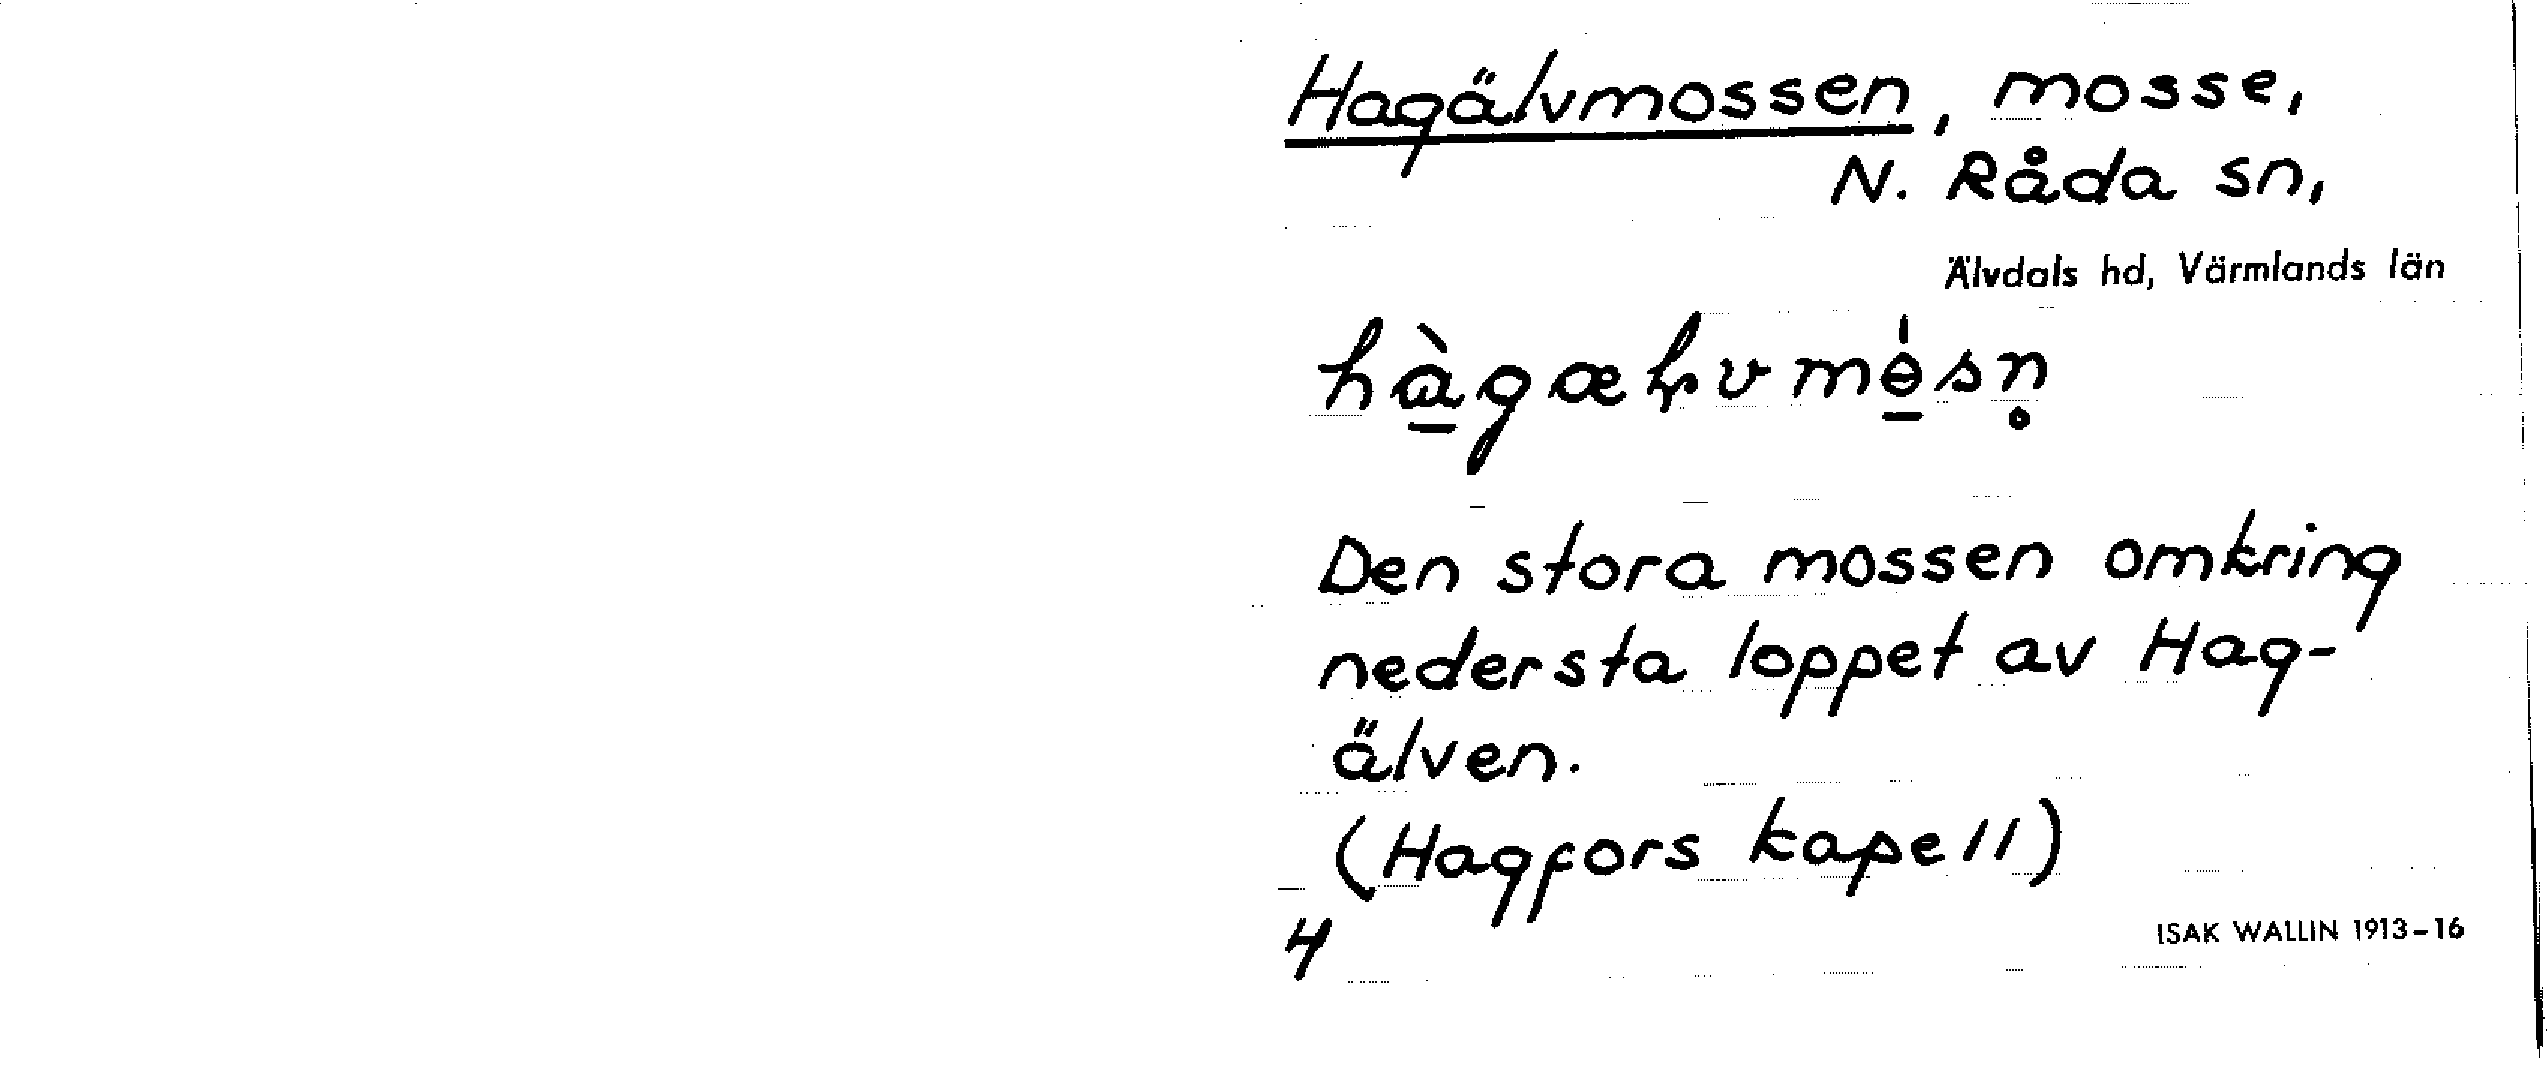 Hagälvmossen, mosse,
N. Råda sn,
Älvdals hd, Värmlands län
Den stora mossen omkring
nedersta loppet av Hag-
älven.
(Hagfors kapell)
4
ISAK WALLIN 1913-16